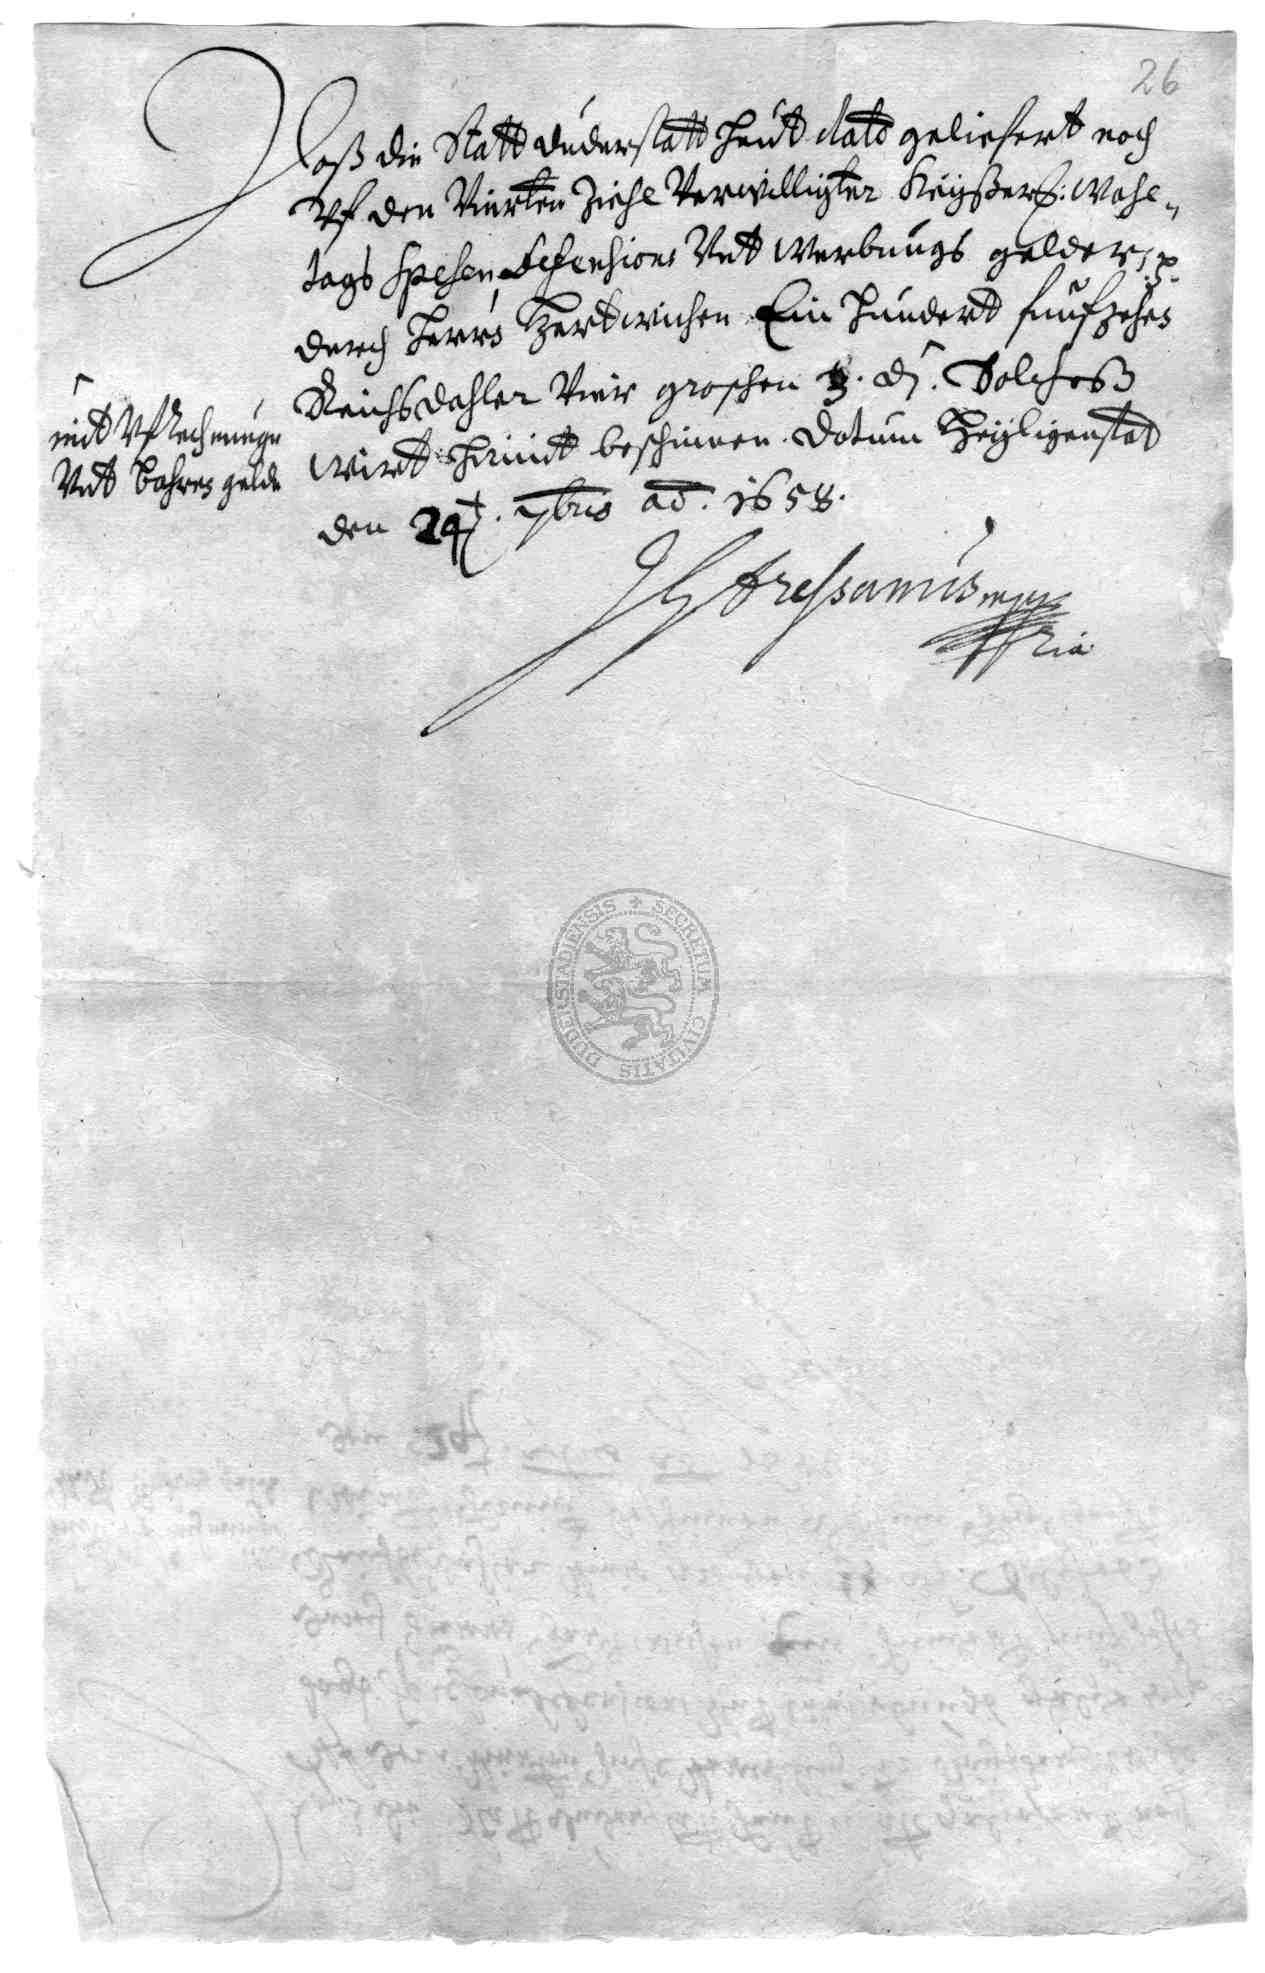 26
Daß die Statt Duderstatt heut dato geliefert noch
Vf den Vierten Ziehl Verwilligter Keyßerl: Wahl„
tags spesen, Defensions Vnt Werbungs gelder,
durch Herrn Hartwichen Ein hundert funfzehen
Reichsdahler Vier groschen 3. d. Solches
wirt hirmit bescheinen. Datum Heyligenstat
den 24t. 7bris aō. 1658.
mit Vfrechnunge
Vnt bahres gelde
Stressanus mpp
ria
SECRETUM CIVITATIS DUDERSTADIENSIS